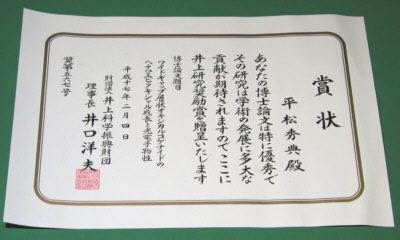 賞状
平松秀典殿
あなたの博士論文は特に優秀で
その研究は学術の発展に多大な
貢献が期待されますのでここに
井上研究奨励賞を贈呈いたします
博士論文題目
ワイドギャップ層状オキシカルコゲナイドの
ヘテロエピタキシャル成長と光電子物性
平成十七年二月四日
財団法人 井上科学振興財団
理事長 井口洋夫
賞第五六七号